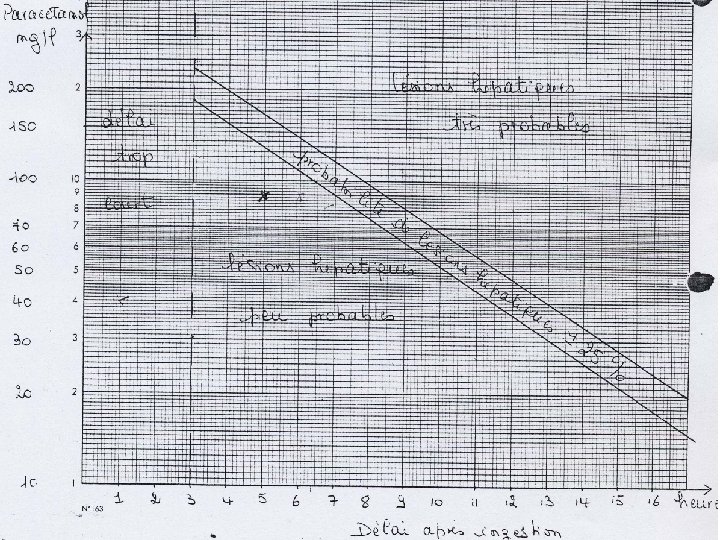 Paracétamol
mg/l
3
200 2
lésions hépatiques
150
délai
très probables
trop
100 10
9
court
8
70 7
60 6
50 5
lésions hépatiques
40 4
peu probables
30 3
20 2
10 1
probabilité de lésions hépatiques > 25 %
1 2 3 4 5 6 7 8 9 10 11 12 13 14 15 16 heures
N° 63
Délai après ingestion